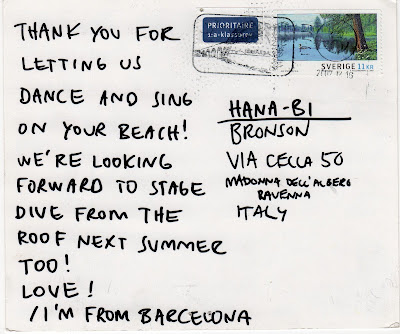 THANK YOU FOR
LETTING US
DANCE AND SING
ON YOUR BEACH!
WE'RE LOOKING
FORWARD TO STAGE
DIVE FROM THE
ROOF NEXT SUMMER
TOO!
LOVE!
/I'M FROM BARCELONA
PRIORITAIRE
1:a-klassbrev
SVERIGE 11KR
HANA-BI
BRONSON
VIA CELLA 50
MADONNA DELL'ALBERO
RAVENNA
ITALY